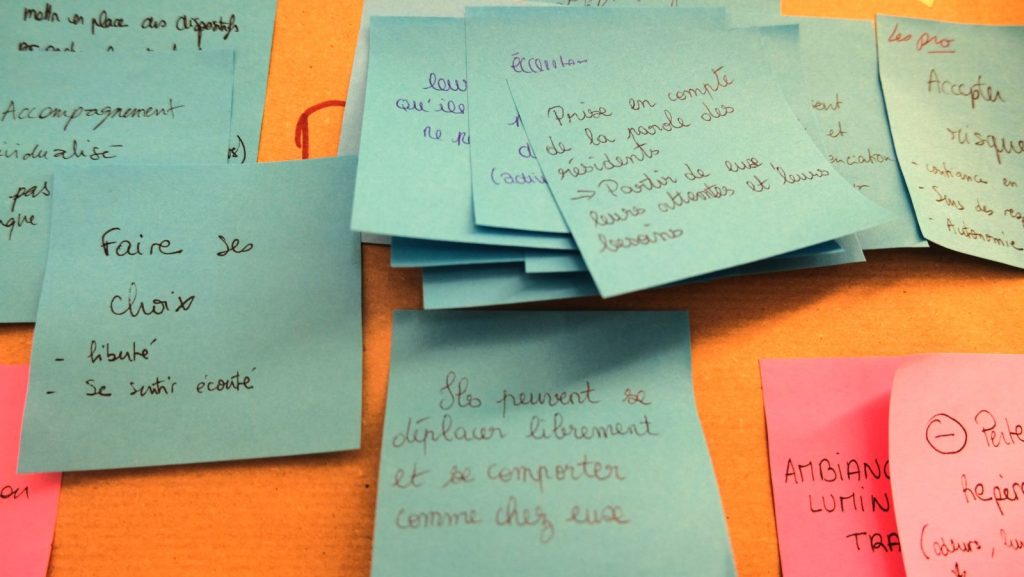 mettre en place des dispositifs
Accompagnement
pas
Faire ses
choix
- liberté
- Se sentir écouté
leur
qu'ils
ne
Prise en compte
de la parole des
résidents
→ Partir de eux,
leurs attentes et leurs
besoins
et
Les pro
Accepter
risque
- confiance en
- Sens des
- Autonomie
Ils peuvent se
déplacer librement
et se comporter
comme chez eux
AMBIANC
LUMIN
TRA
⊖ Perte
Repèr